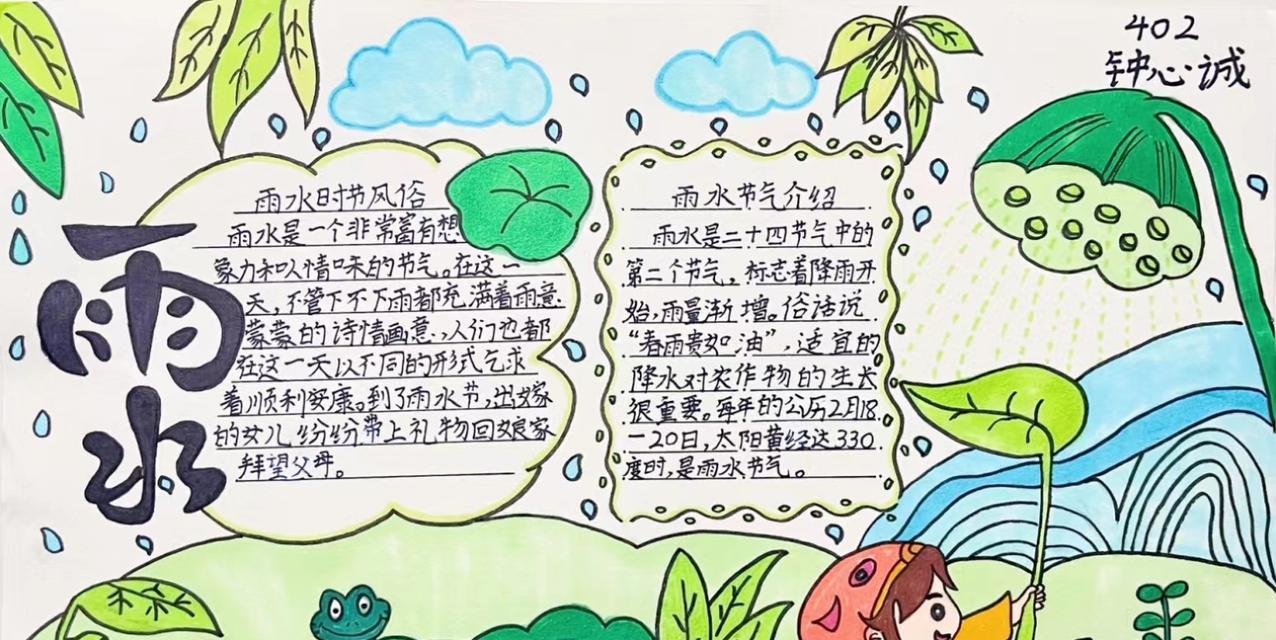 402
钟心诚
雨水
雨水时节风俗
雨水是一个非常富有想
象力和人情味的节气。在这一
天，不管下不下雨都充满着雨意
蒙蒙的诗情画意，人们也都
在这一天以不同的形式乞求
着顺利安康。到了雨水节，出嫁
的女儿纷纷带上礼物回娘家
拜望父母。
雨水节气介绍
雨水是二十四节气中的
第二个节气，标志着降雨开
始，雨量渐增。俗话说
“春雨贵如油”，适宜的
降水对农作物的生长
很重要。每年的公历2月18
—20日，太阳黄经达330
度时，是雨水节气。